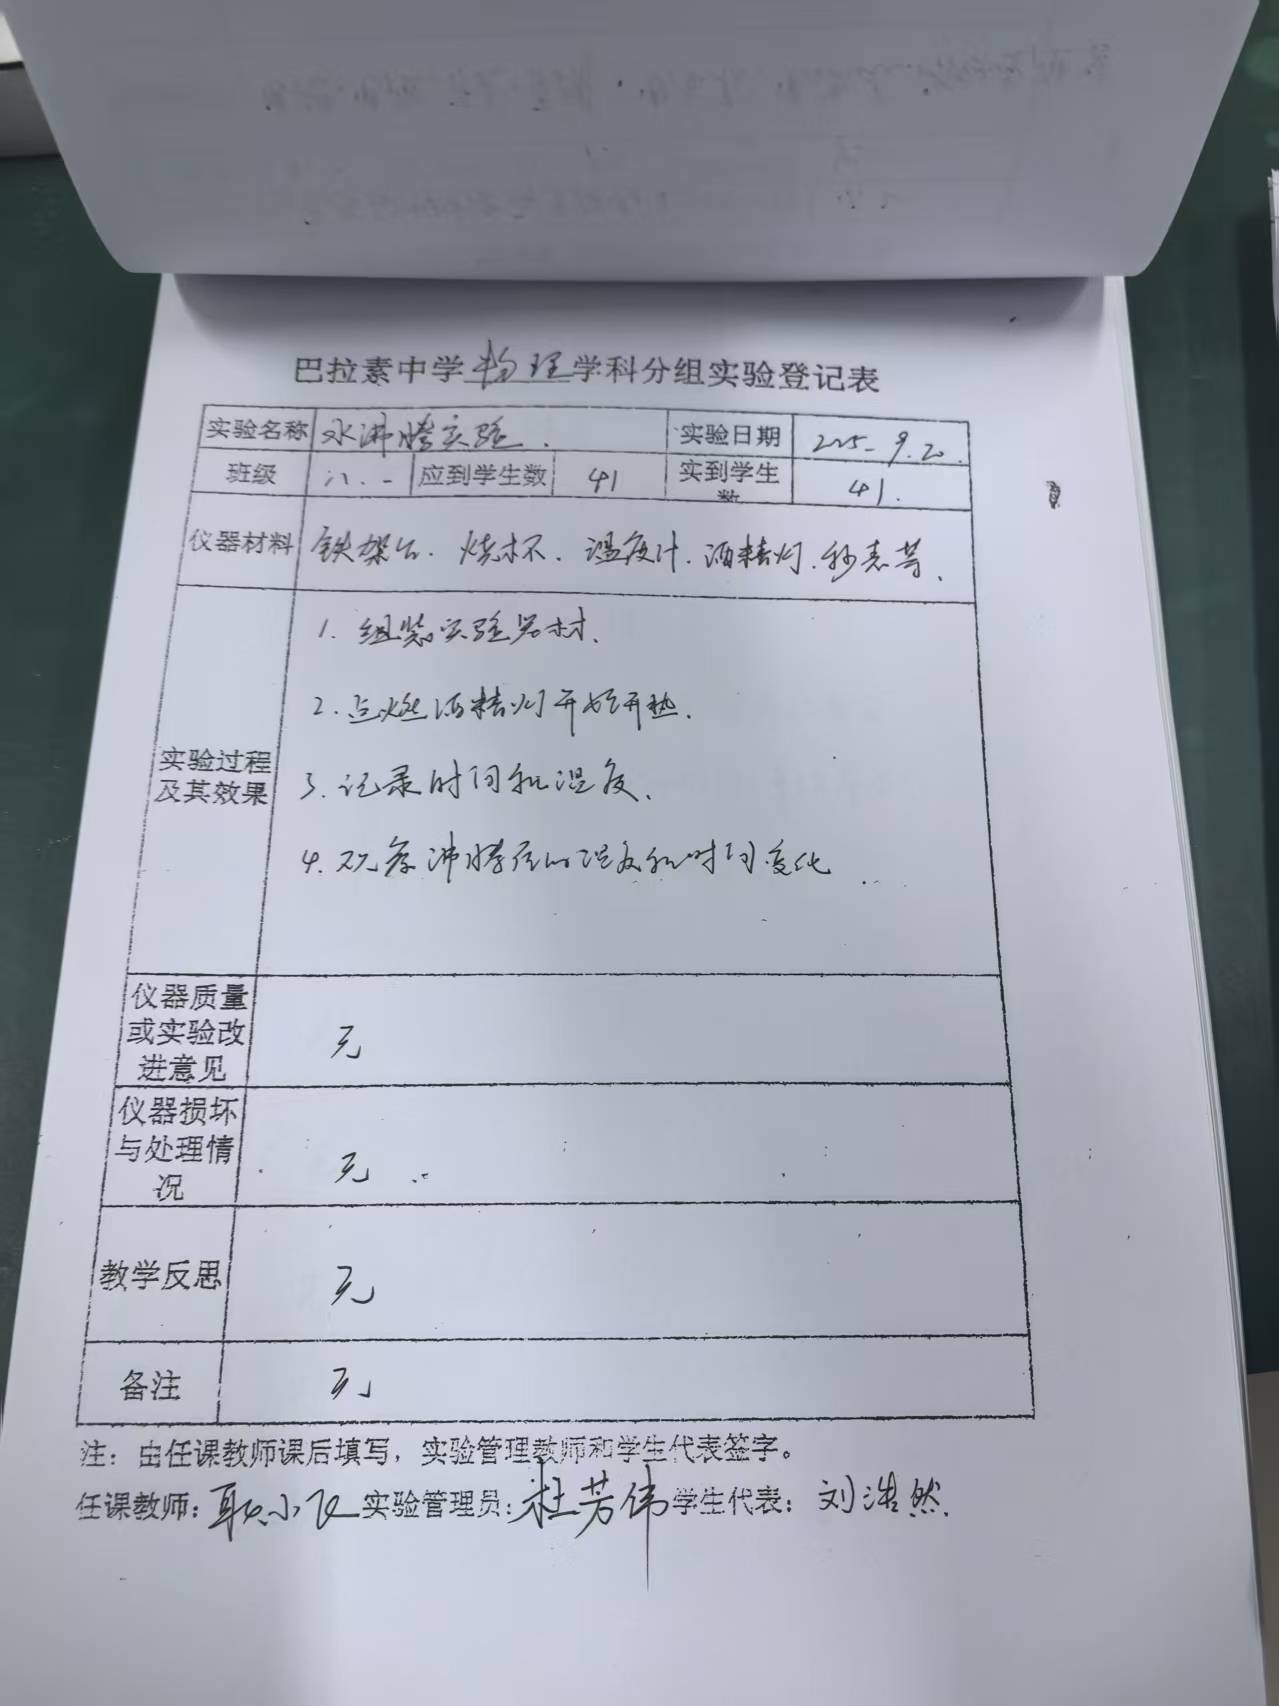 巴拉素中学物理学科分组实验登记表
实验名称 水沸腾实验. 实验日期 2025.9.20.
班级 八.一 应到学生数 41 实到学生数 41.
仪器材料 铁架台. 烧杯. 温度计. 酒精灯. 秒表等.
实验过程及其效果
1. 组装实验器材.
2. 点燃酒精灯开始加热.
3. 记录时间和温度.
4. 观察沸腾后的温度和时间变化
仪器质量或实验改进意见 无
仪器损坏与处理情况 无
教学反思 无
备注 无
注：由任课教师课后填写，实验管理教师和学生代表签字。
任课教师：耿小飞 实验管理员：杜芳伟 学生代表：刘浩然